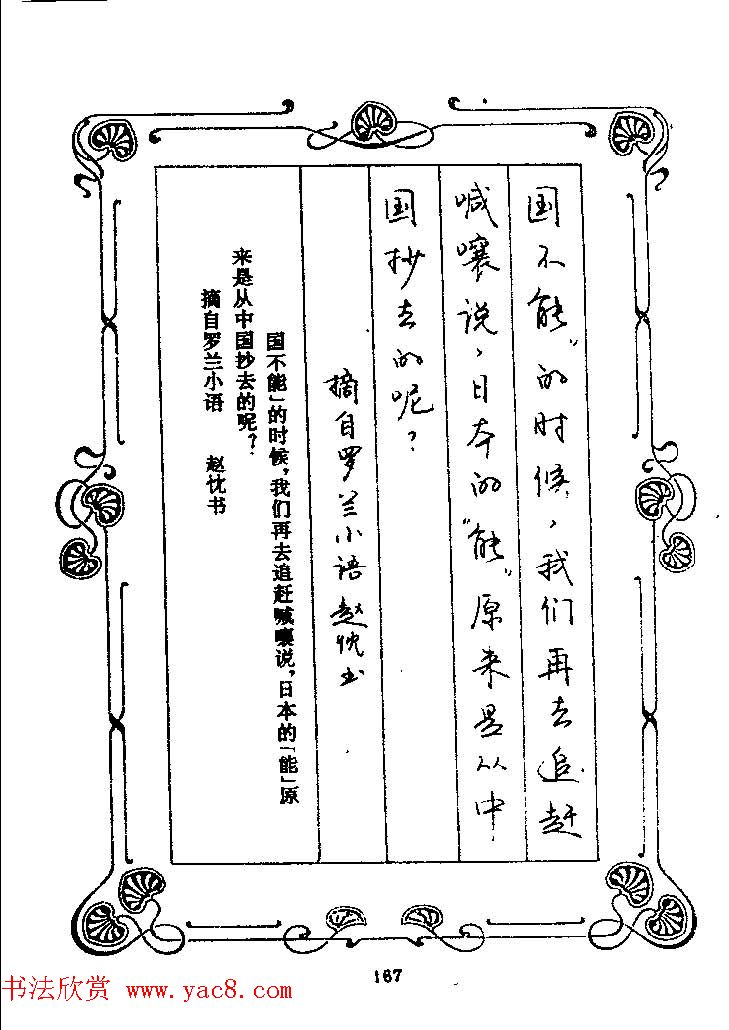 国不能”的时候，我们再去追赶
喊嚷说，日本的“能”原来是从中
国抄去的呢？
摘自罗兰小语 赵忱书
国不能」的时候，我们再去追赶喊嚷说，日本的「能」原
来是从中国抄去的呢？
摘自罗兰小语 赵忱书
167
书法欣赏 www.yac8.com